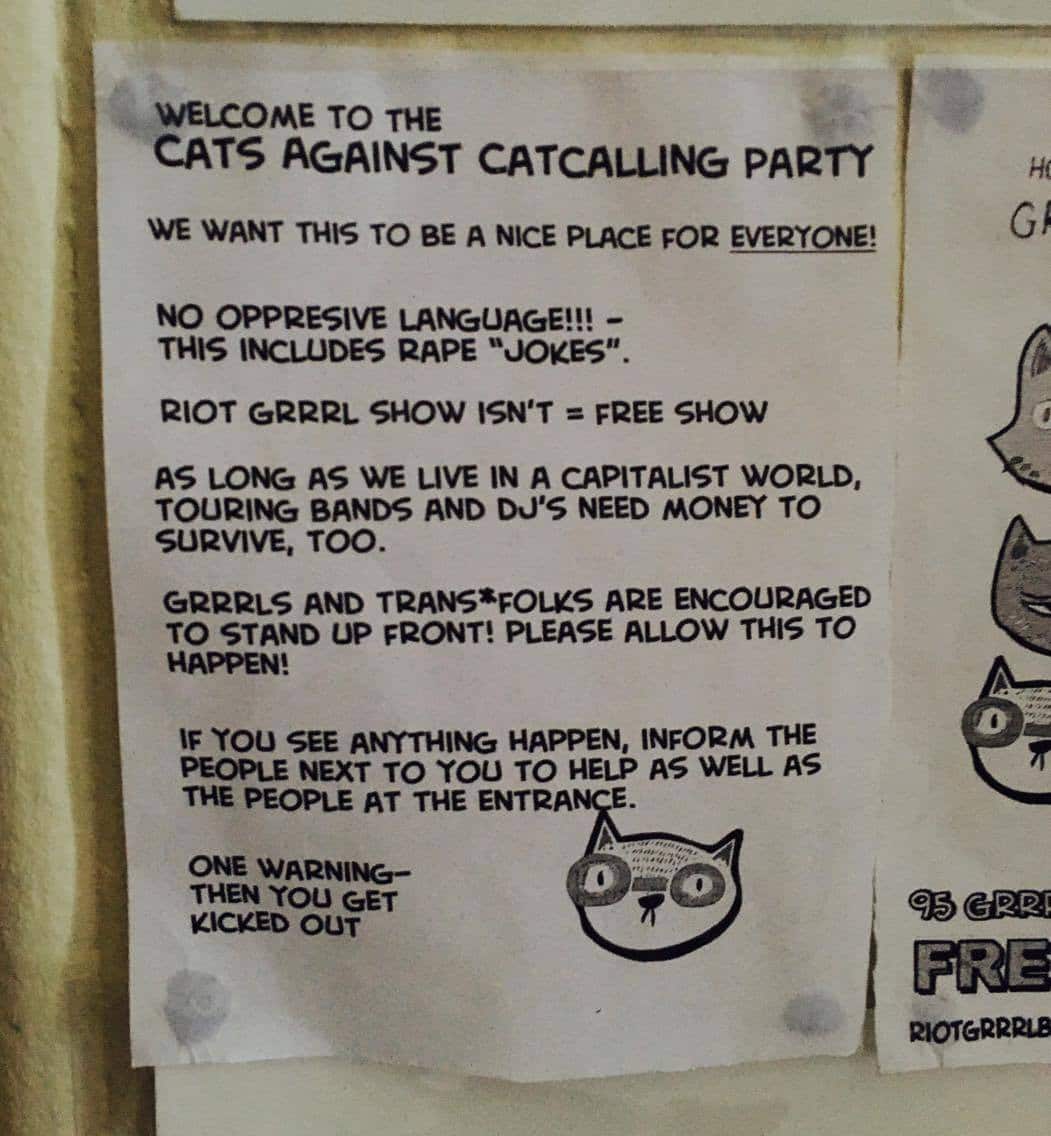 WELCOME TO THE
CATS AGAINST CATCALLING PARTY
WE WANT THIS TO BE A NICE PLACE FOR EVERYONE!
NO OPPRESIVE LANGUAGE!!! –
THIS INCLUDES RAPE "JOKES".
RIOT GRRRL SHOW ISN'T = FREE SHOW
AS LONG AS WE LIVE IN A CAPITALIST WORLD,
TOURING BANDS AND DJ'S NEED MONEY TO
SURVIVE, TOO.
GRRRLS AND TRANS*FOLKS ARE ENCOURAGED
TO STAND UP FRONT! PLEASE ALLOW THIS TO
HAPPEN!
IF YOU SEE ANYTHING HAPPEN, INFORM THE
PEOPLE NEXT TO YOU TO HELP AS WELL AS
THE PEOPLE AT THE ENTRANCE.
ONE WARNING–
THEN YOU GET
KICKED OUT
95